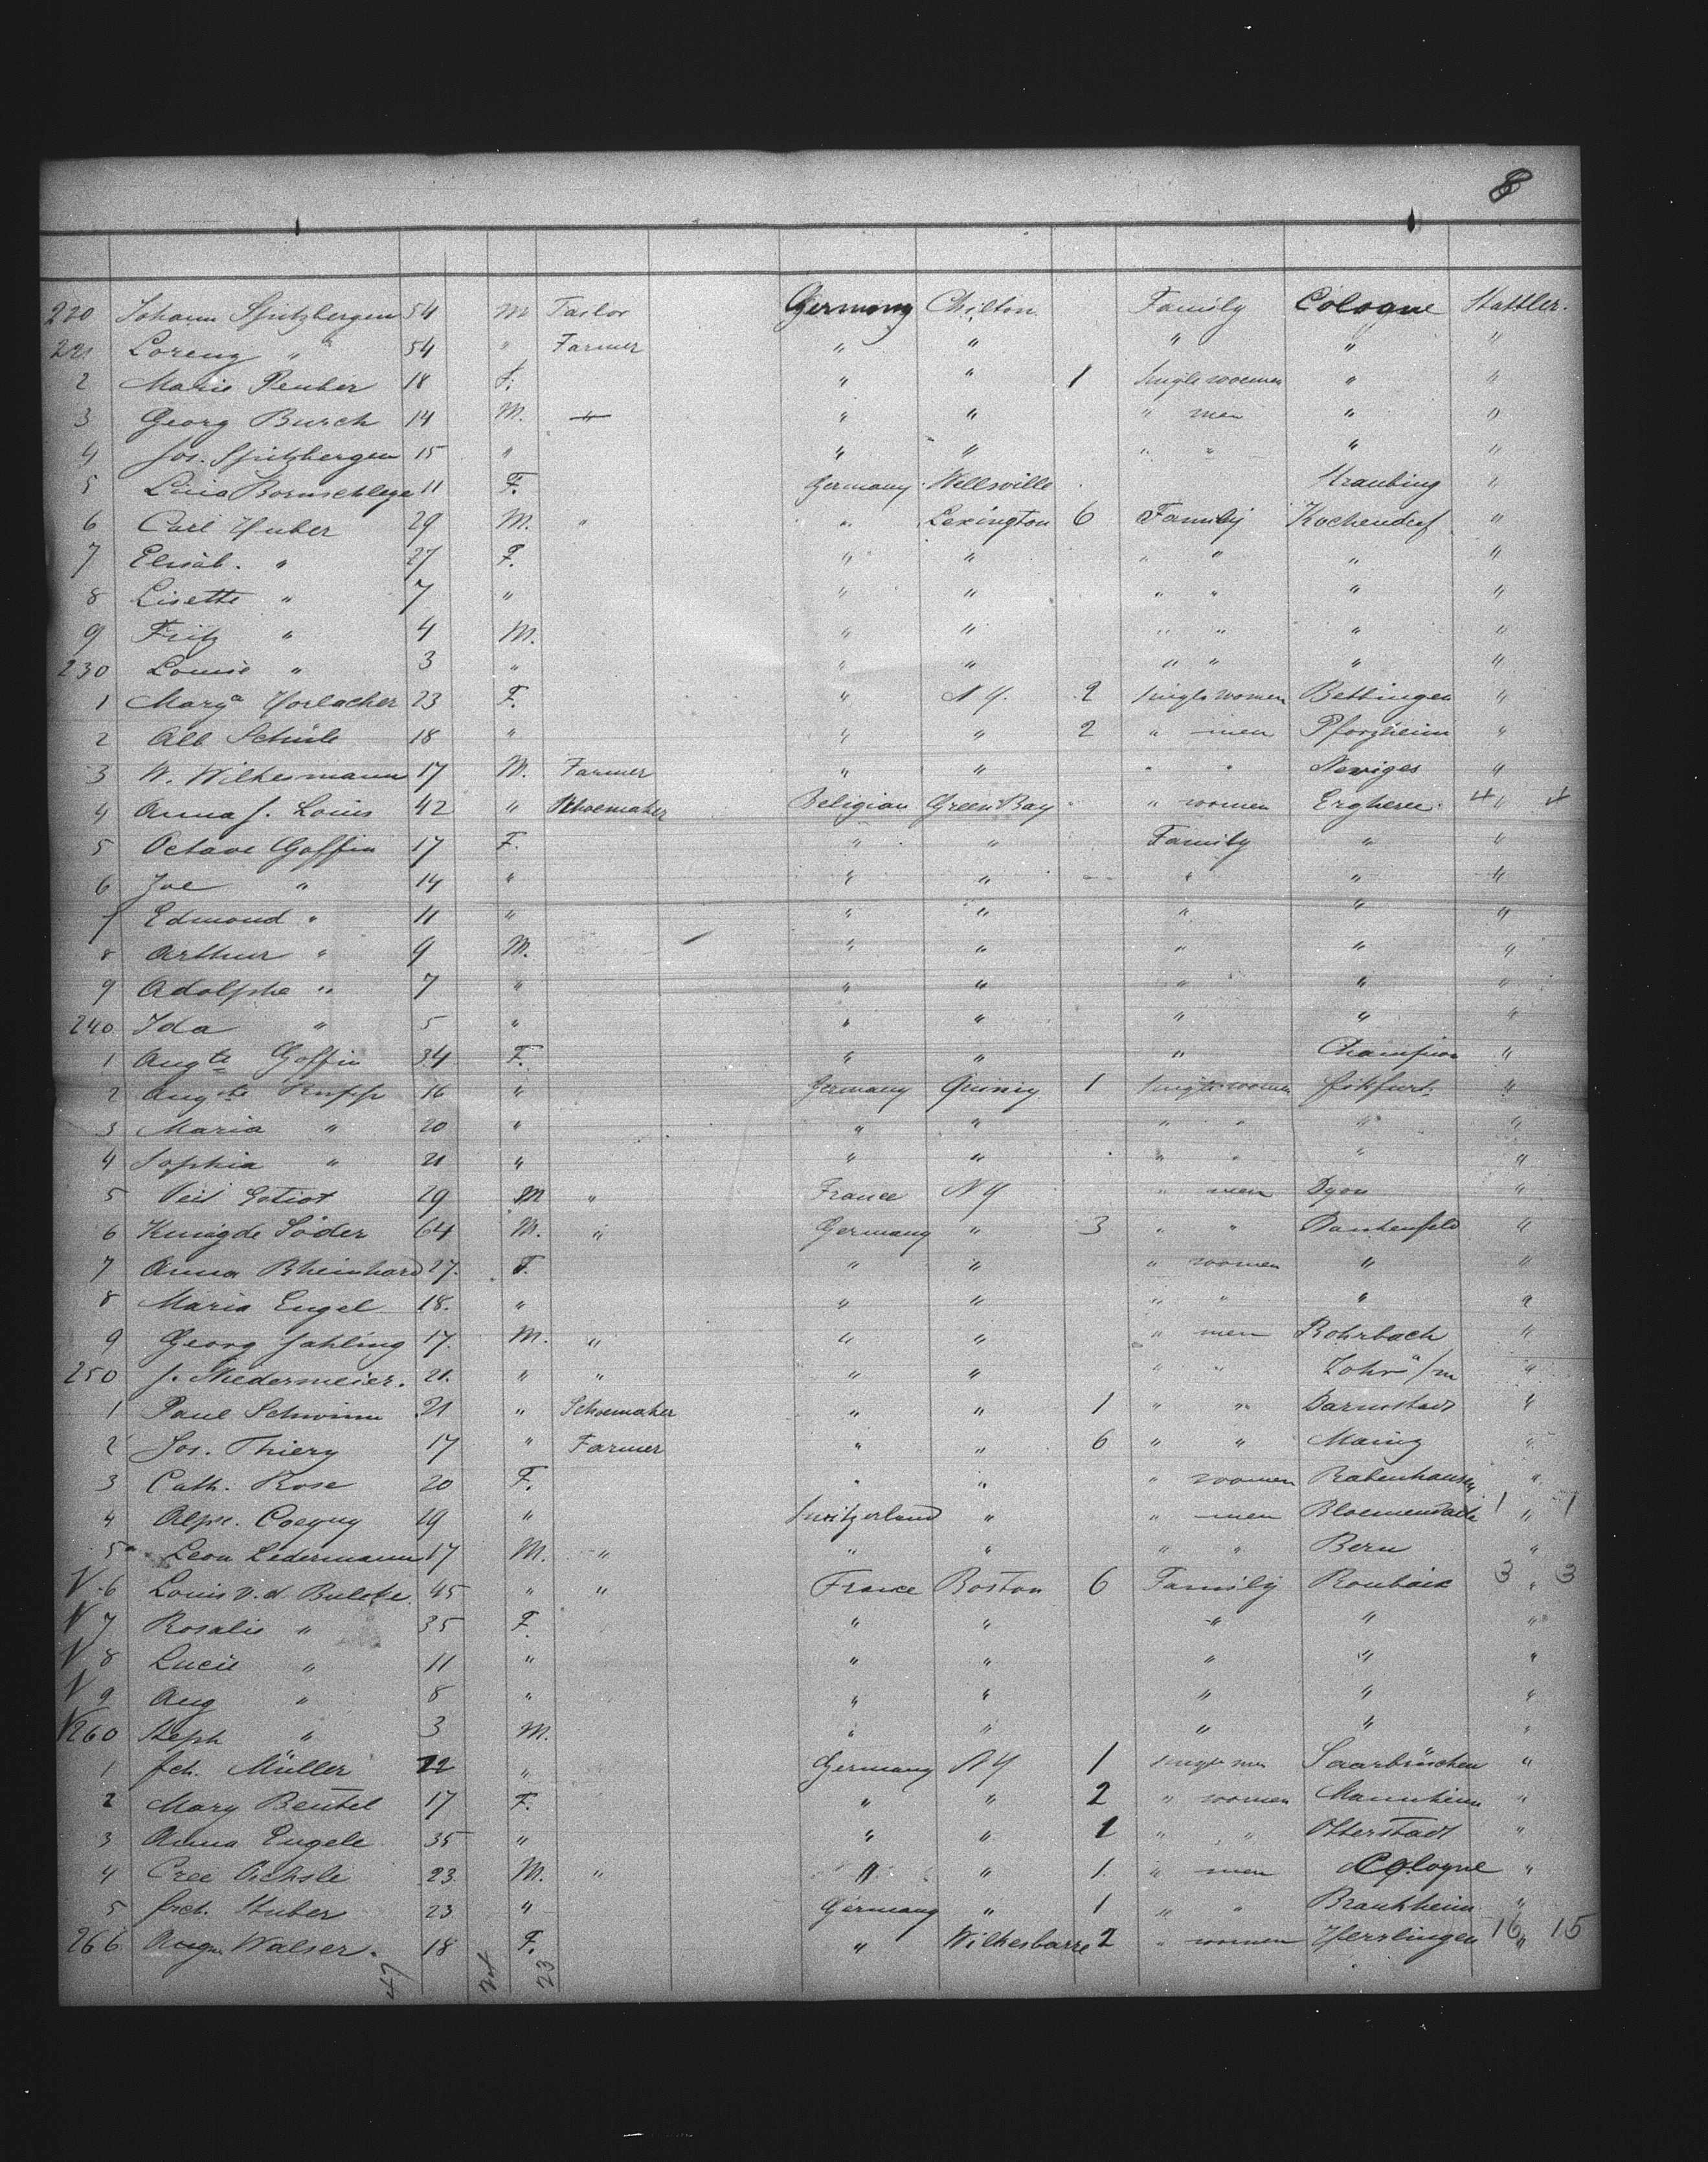 8
220 Johann Spitzbergen 54 M Tailor Germany Chilton Family Cologne Stattler.
221 Lorenz " 54 " Farmer " " " " "
2 Marie Reuber 18 F. " " 1 Single women " "
3 Georg Burch 14 M. " " " " men " "
4 Jos. Spitzbergen 15 " " " " " " "
5 Lina Bornschlege 11 F. Germany Wellsville Straubing "
6 Carl Huber 29 M. " " Lexington 6 Family Kochendorf "
7 Elisab. " 27 F. " " " " " "
8 Lisette " 7 " " " " " " "
9 Fritz " 4 M. " " " " " "
230 Louise " 3 " " " " " " "
1 Marga Horlacher 23 F. " N Y. 2 Single women Bettingen "
2 Alb Schüle 18 " " " 2 " men Pforzheim "
3 W. Wilkesmann 17 M. Farmer " " " " Neviges "
4 Anna J. Louis 42 " Schoemaker Beligian Green Bay " women Erghene 4 " 4
5 Octave Goffin 17 F. " " Family " "
6 Joe " 14 " " " " " "
7 Edmond " 11 " " " " " "
8 Arthur " 9 M. " " " " "
9 Adolphe " 7 " " " " " "
240 Ida " 5 " " " " " "
1 Augte Goffin 34 F. " " " Champion "
2 Augste Rupp 16 " Germany Quinsy 1 Single women "
3 Maria " 20 " " " " " " "
4 Sophia " 21 " " " " " " "
5 29 M " France N Y " men Dyon "
6 Kunigde Söder 64 M. " Germany " 3 " " Dankenfeld "
7 Anna Rheinhard 27. F. " " " women " "
8 Maria Engel 18. " " " " " " "
9 Georg Jahling 17. M. " " " " men Rohrbach "
250 J. Niedermeier. 21. " " " " " " Lohr a/m "
1 Paul Schwinn 21 " Schoemaker " " 1 " " Darmstadt "
2 Jos. Thiery 17 " Farmer " " 6 " " Mainz "
3 Cath. Rose 20 F. " " " women Babenhausen "
4 19 " Switzerland " " men Bloemendaele 1 " 1
5 Leon Ledermann 17 M. " " " " " Bern "
V 6 Louis v. d. Bulcke 45 " " France Boston 6 Family Roubaix 3 " 3
V 7 Rosalie " 35 F. " " " " "
V 8 Lucie " 11 " " " " " "
V 9 Aug " 8 " " " " " "
V 260 Steph " 3 M. " " " " "
1 Joh. Müller 22 " Germany N Y 1 Single men Saarbrücken "
2 Mary Beutel 17 F. " " 2 " women Mannheim "
3 Anna Engele 35 " " " 1 " " Otterstadt "
4 23 M. " " " 1. " men Cologne "
5 Fred. Huber 23 " Germany " 1 " " Brankheim "
266 Augn. Walser. 18 F. " Wilkesbarre 2 " women Herrlingen 16 " 15
47 24 23